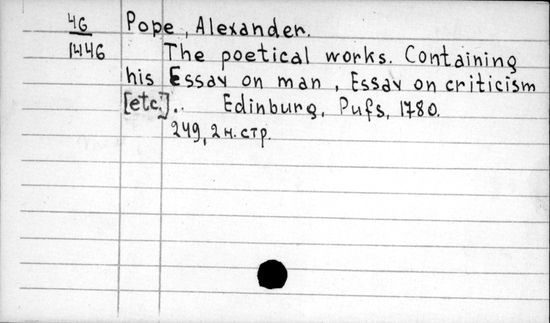 46 Pope, Alexander.
1446 The poetical works. Containing
his Essay on man, Essay on criticism
[etc.].. Edinburg, Pufs, 1780.
249, 2 н. стр.